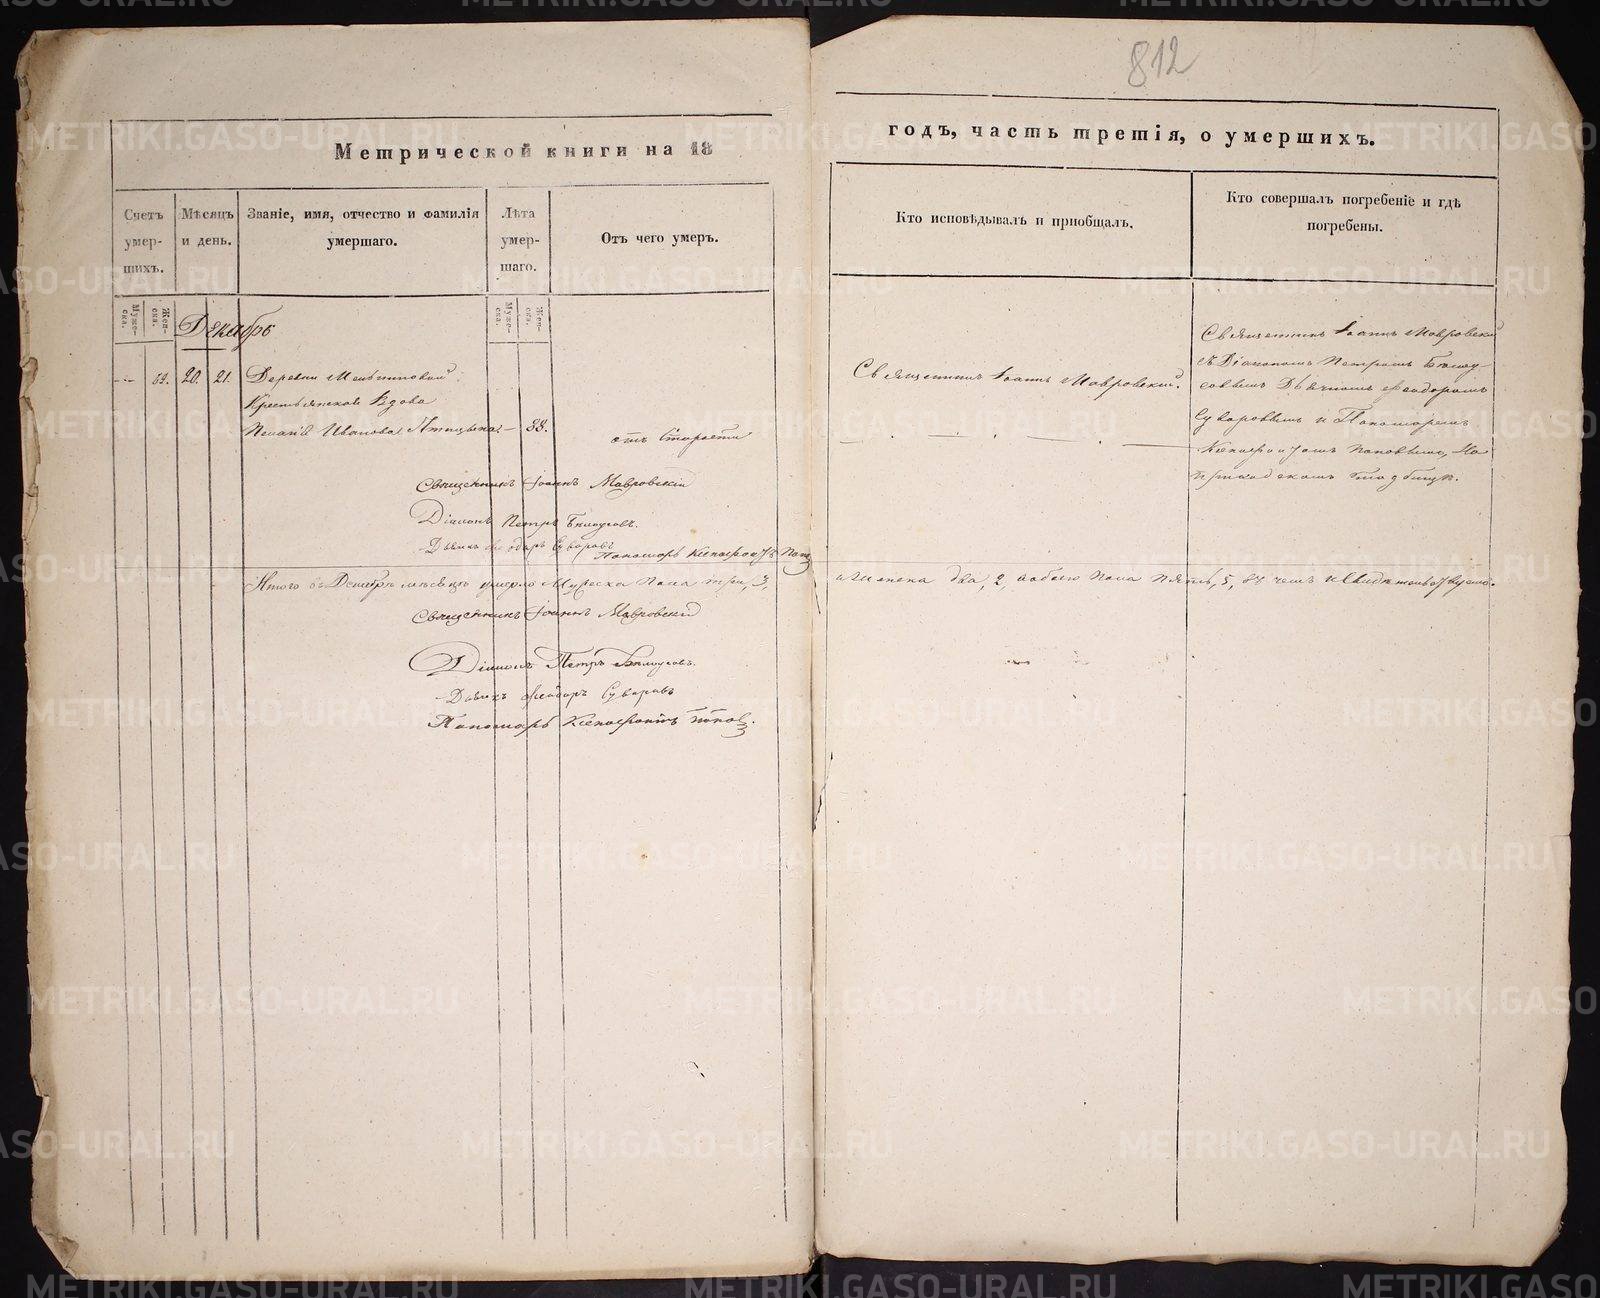 812
Метрической книги на 18
годъ, часть третія, о умершихъ.
Счетъ умер-шихъ.
Мѣсяцъ и день.
Званіе, имя, отчество и фамилія умершаго.
Лѣта умер-шаго.
Отъ чего умеръ.
Кто исповѣдывалъ и пріобщалъ.
Кто совершалъ погребеніе и гдѣ погребены.
Муже-ска.
Жен-ска.
Муже-ска.
Жен-ска.
Декабрь
69. 20. 21. Деревни
Крестьянская Вдова
Иванова 88.
отъ старости
Священникъ Іоаннъ Мавровскій.
Священникъ Іоаннъ Мавровскій
съ Діакономъ Петромъ
Дьячкомъ Феодоромъ
Суваровымъ и Пономаремъ
Ксенофонтомъ Поповымъ, На
приходскомъ кладбищѣ.
Священникъ Іоаннъ Мавровскій
Діаконъ Петръ
Дьячекъ Феодоръ Суваровъ
Пономарь Ксенофонтъ Попов
Итого въ Декабрѣ мѣсяцѣ умерло Мужеска пола три, 3,
а Женска два, 2, а обоего пола пять, 5, въ чемъ и свидѣтельствуемъ.
Священникъ Іоаннъ Мавровскій
Діаконъ Петръ
Дьячекъ Феодоръ Суваровъ
Пономарь Ксенофонтъ Попов
METRIKI.GASO-URAL.RU